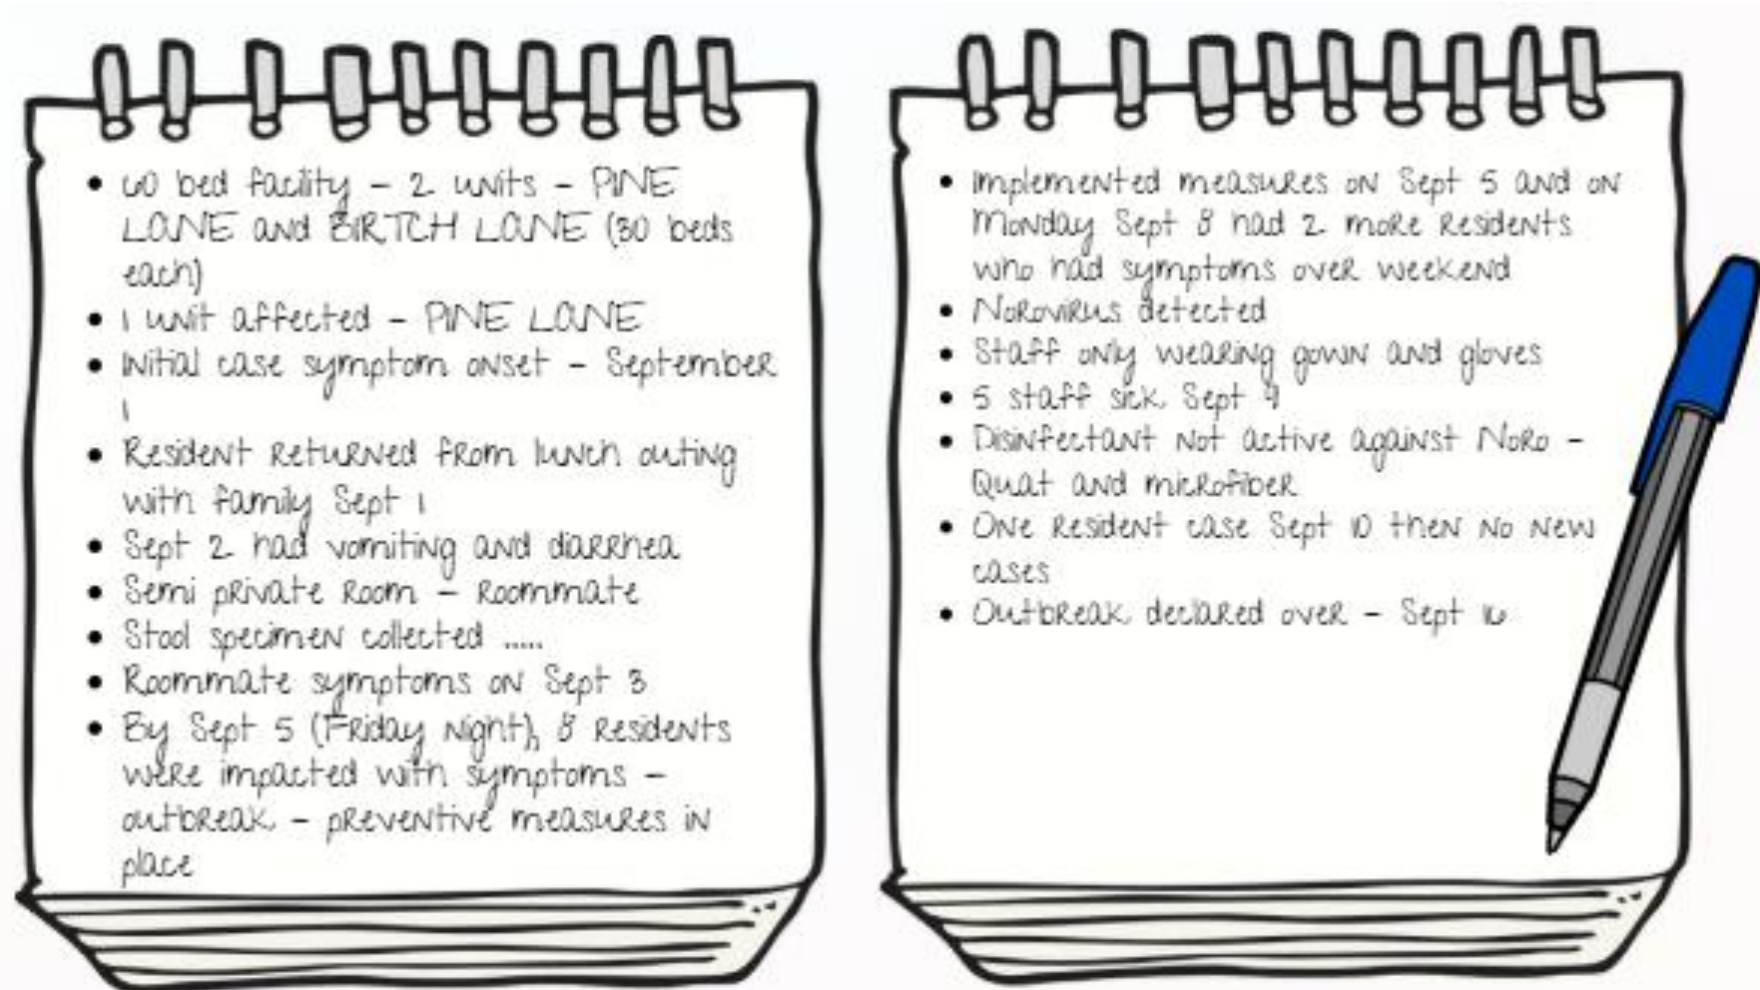 • 60 bed facility - 2 units - PINE
LANE and BIRTCH LANE (30 beds
each)
• 1 unit affected - PINE LANE
• Initial case symptom onset - September
1
• Resident returned from lunch outing
with family Sept 1
• Sept 2 had vomiting and diarrhea
• Semi private room - roommate
• Stool specimen collected .....
• Roommate symptoms on Sept 3
• By Sept 5 (Friday night), 8 residents
were impacted with symptoms -
outbreak - preventive measures in
place
• Implemented measures on Sept 5 and on
Monday Sept 8 had 2 more residents
who had symptoms over weekend
• Norovirus detected
• Staff only wearing gown and gloves
• 5 staff sick Sept 9
• Disinfectant not active against Noro -
Quat and microfiber
• One resident case Sept 10 then no new
cases
• Outbreak declared over - Sept 16